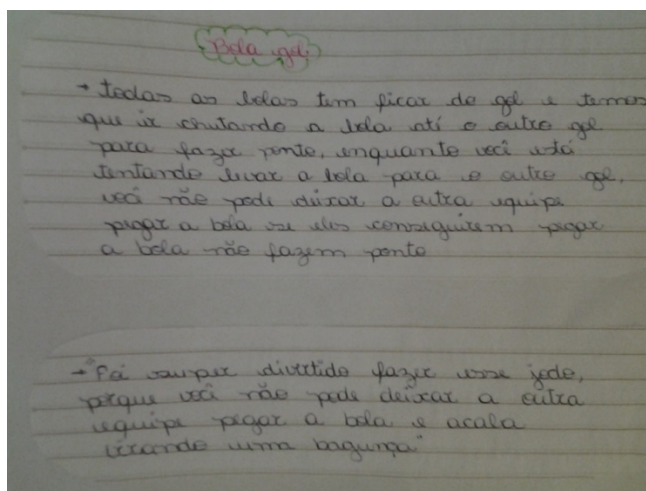 Bola gol
→ todas as bolas tem ficar do gol e temos
que ir chutando a bola até o outro gol
para fazer ponto, enquanto você está
tentando levar a bola para o outro gol,
você não pode deixar a outra equipe
pegar a bola se eles conseguirem pegar
a bola não fazem ponto
→ "Foi super divertido fazer esse jodo,
porque você não pode deixar a outra
equipe pegar a bola e acaba
virando uma bagunça"